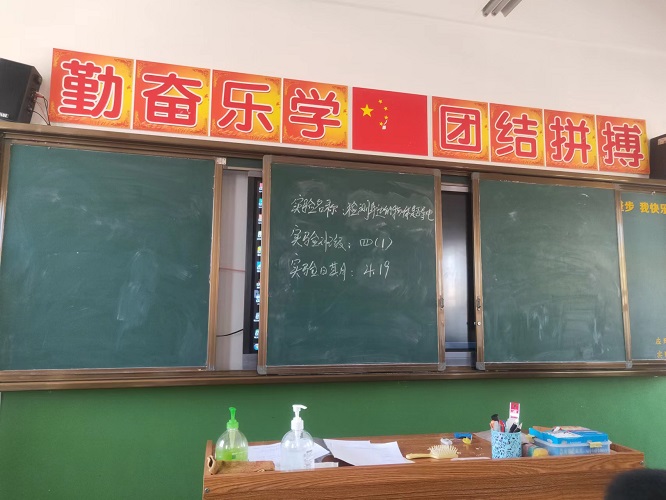 勤奋乐学 团结拼搏
实验名称：检测
实验班级：四(1)
实验日期：4.19
步 我快乐